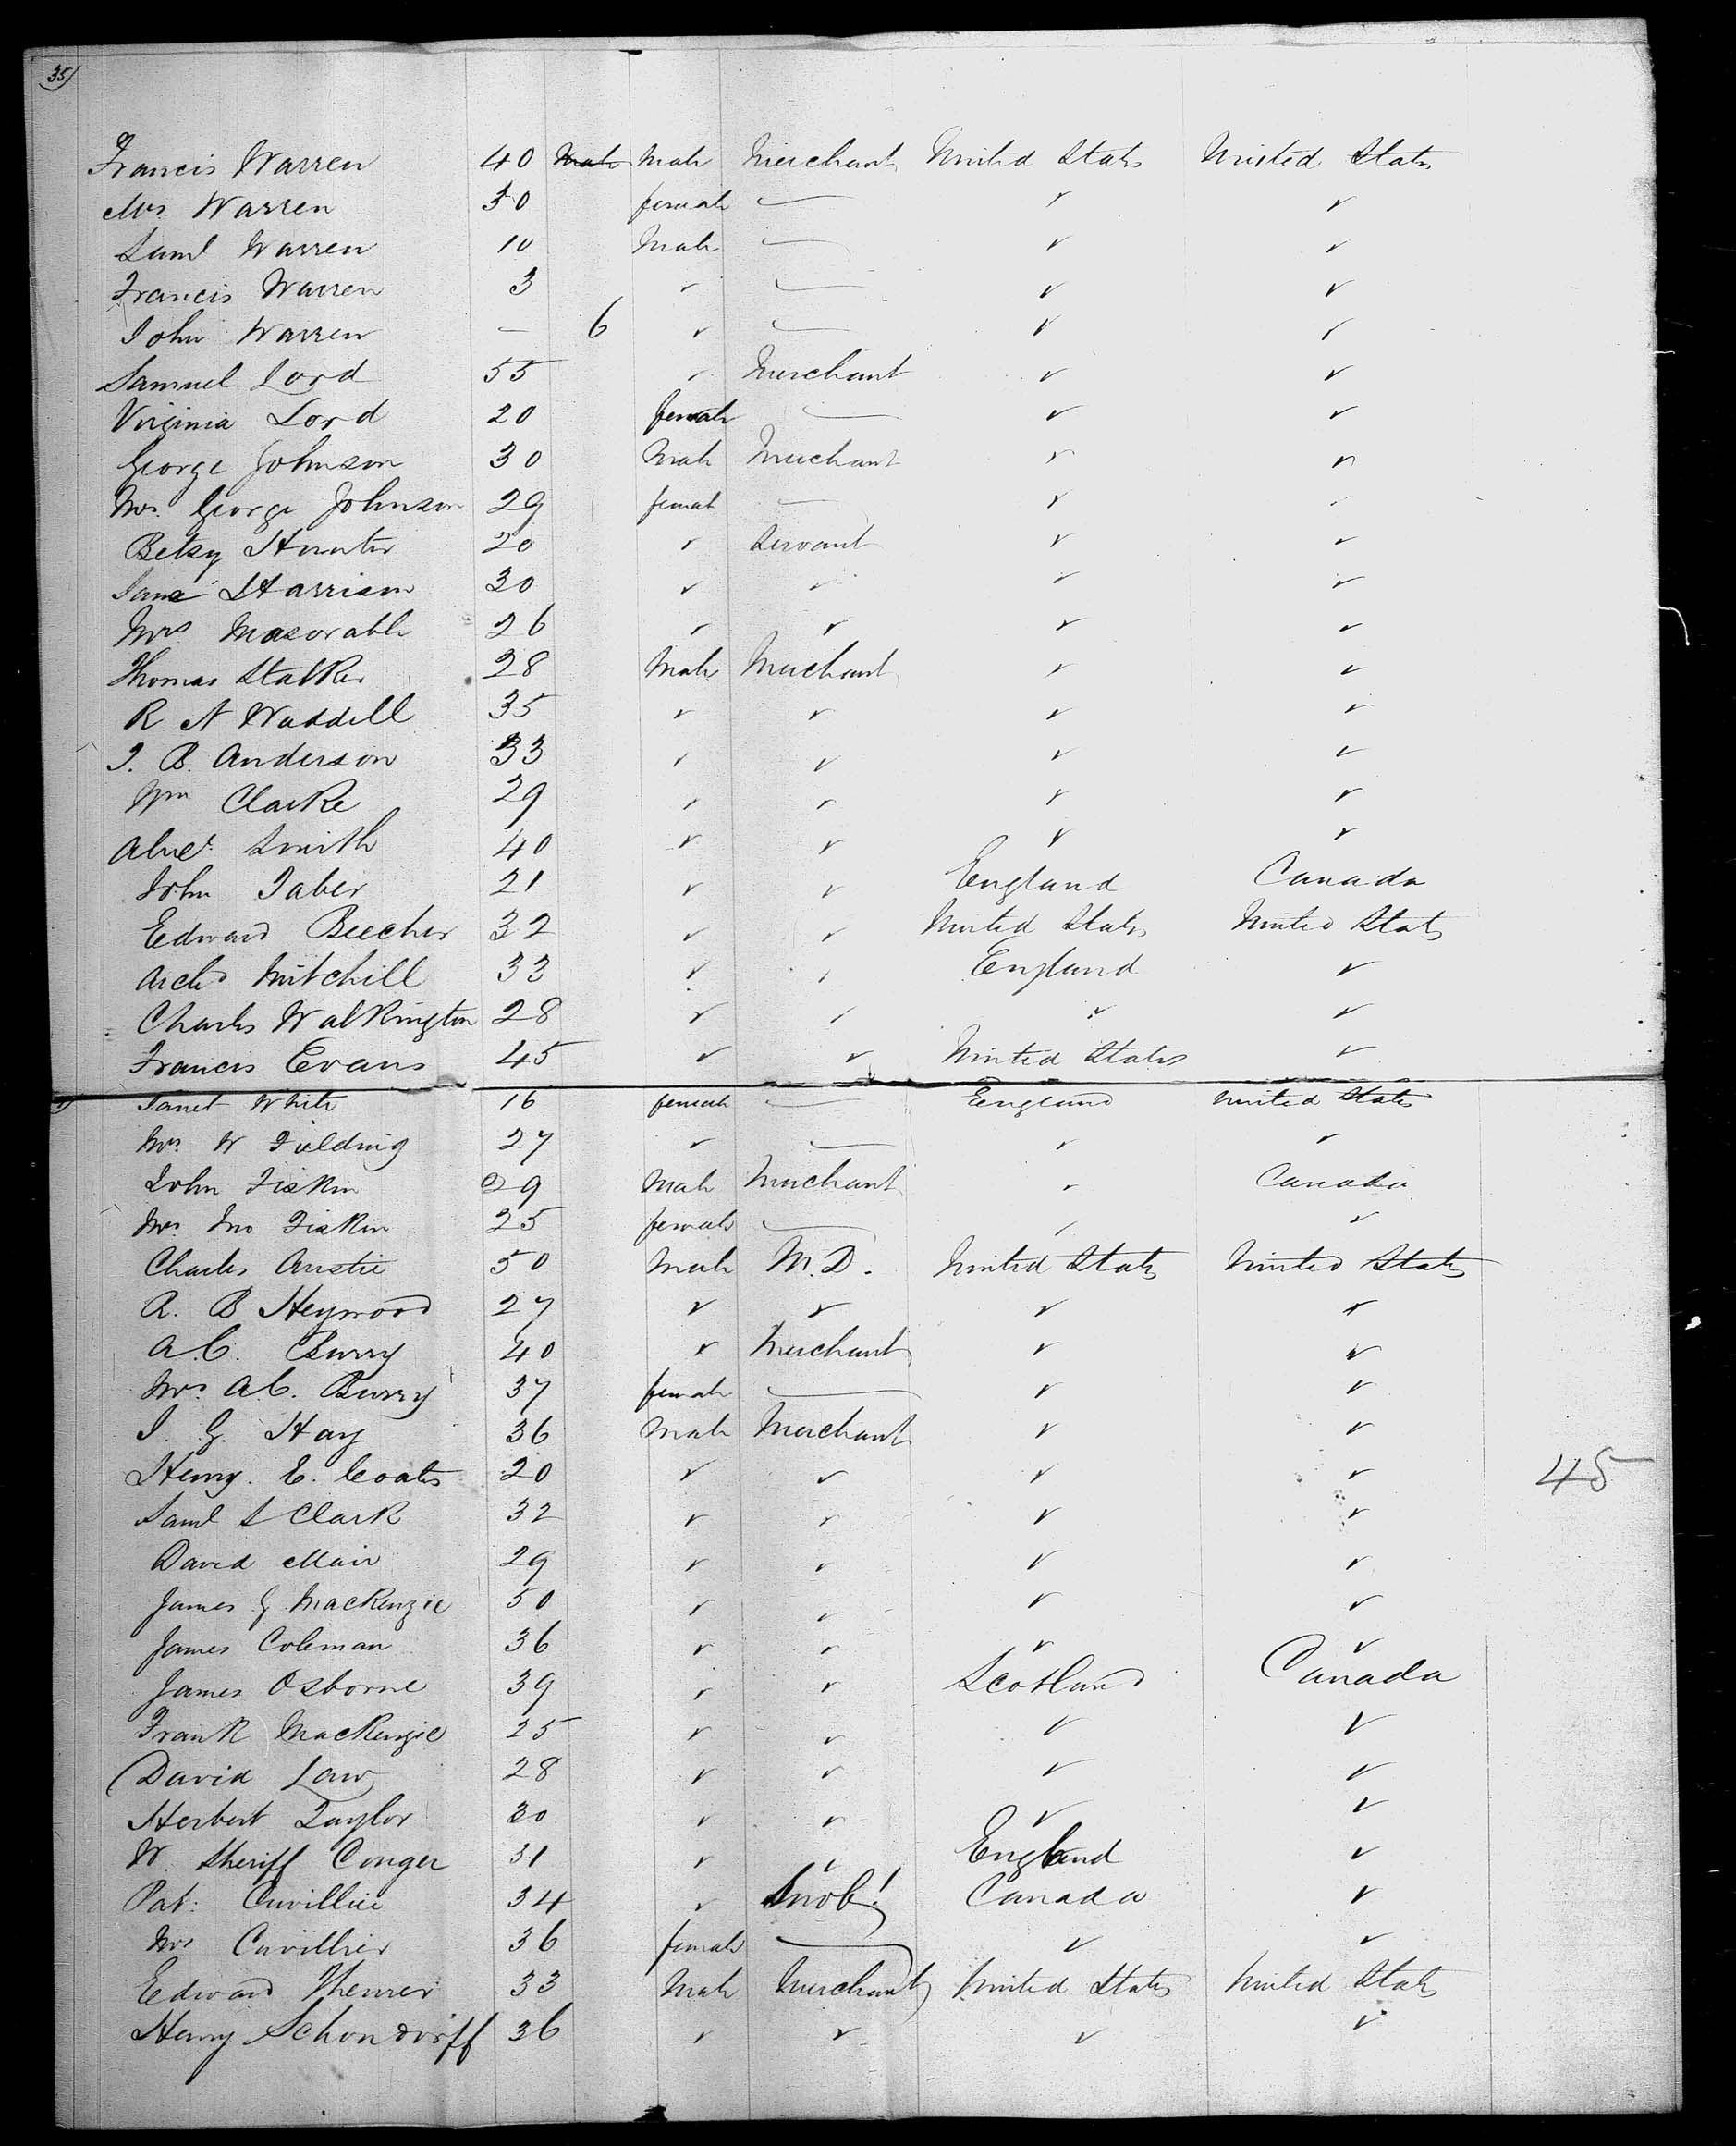 35)
Francis Warren 40 Male Male Merchant United States United States
Mrs Warren 30 female — ✓ ✓
Saml Warren 10 Male — ✓ ✓
Francis Warren 3 ✓ — ✓ ✓
John Warren — 6 ✓ — ✓ ✓
Samuel Lord 55 ✓ Merchant ✓ ✓
Virginia Lord 20 female — ✓ ✓
George Johnson 30 Male Merchant ✓ ✓
Mrs. George Johnson 29 female — ✓ ✓
Betsy Hunter 20 ✓ Servant ✓ ✓
Jane Harrison 30 ✓ ✓ ✓ ✓
Mrs 26 ✓ ✓ ✓ ✓
Thomas Stalker 28 Male Merchant ✓ ✓
R N Waddell 35 ✓ ✓ ✓ ✓
J. B. Anderson 33 ✓ ✓ ✓ ✓
Wm Clarke 29 ✓ ✓ ✓ ✓
Smith 40 ✓ ✓ ✓ ✓
John Taber 21 ✓ ✓ England Canada
Edward Beecher 32 ✓ ✓ United States United States
Archd Mitchill 33 ✓ ✓ England ✓
Charles Walkington 28 ✓ ✓ ✓ ✓
Francis Evans 45 ✓ ✓ United States ✓
Janet White 16 female — England United States
Mrs. W Fielding 27 ✓ — ✓ ✓
John Fiskin 29 Male Merchant ✓ Canada
Mrs Jno Fiskin 25 female — ✓ ✓
Charles Anstie 50 Male M.D. United States United States
R. B Heywood 27 ✓ ✓ ✓ ✓
A.C. Burry 40 ✓ Merchant ✓ ✓
Mrs. A.C. Burry 37 female — ✓ ✓
J. G. Hay 36 Male Merchant ✓ ✓
Henry. E. Coates 20 ✓ ✓ ✓ ✓ 45
Saml S Clark 32 ✓ ✓ ✓ ✓
David Mair 29 ✓ ✓ ✓ ✓
James G MacKenzie 50 ✓ ✓ ✓ ✓
James Coleman 36 ✓ ✓ ✓ ✓
James Osborne 39 ✓ ✓ Scotland Canada
Frank MacKenzie 25 ✓ ✓ ✓ ✓
David Law 28 ✓ ✓ ✓ ✓
Herbert Taylor 30 ✓ ✓ ✓ ✓
W. Sheriff Conger 31 ✓ ✓ England ✓
Pat: Cuvillier 34 ✓ Snob! Canada ✓
Mrs Cuvillier 36 female — ✓ ✓
Edward 33 Male Merchant United States United States
Henry Schondorff 36 ✓ ✓ ✓ ✓